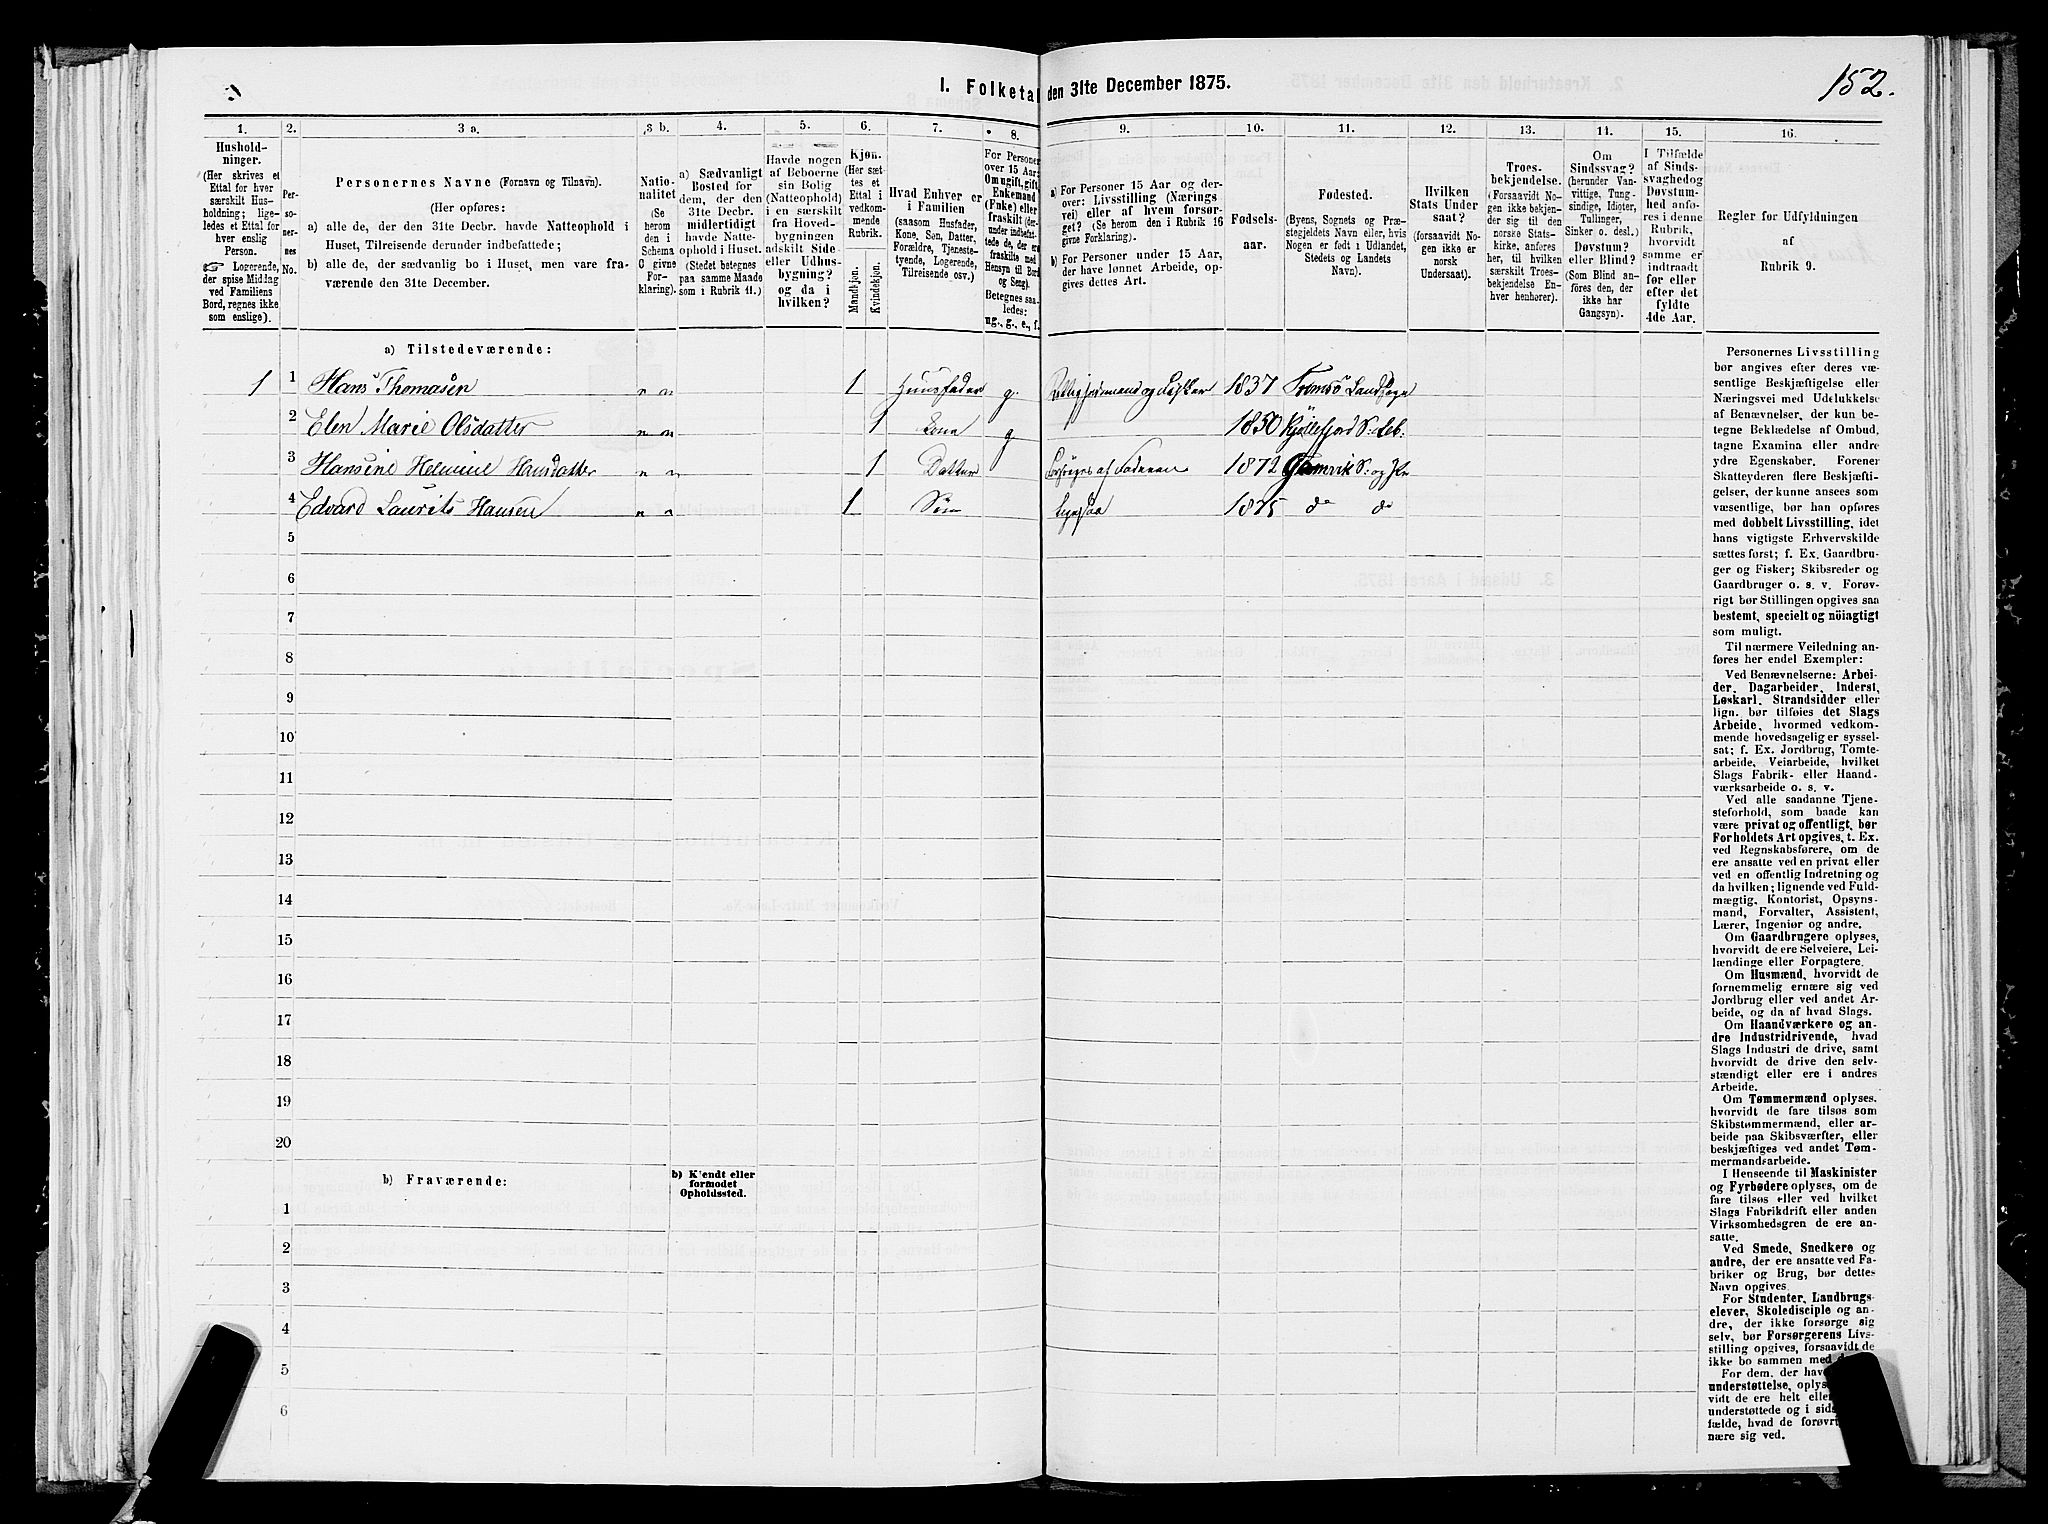 152.
I. Folketa den 31te December 1875.
1. 2. 3 a. 3 b. 4. 5. 6. 7. 8. 9. 10. 11. 12. 13. 14. 15. 16.
Hushold-
ninger.
(Her skrives et
Ettal for hver
særskilt Hus-
holdning; lige-
ledes et Ettal for
hver enslig
Person.
☞ Logerende,
der spise Middag
ved Familiens
Bord, regnes ikke
som enslige).
Per-
so-
ner-
nes
No.
Personernes Navne (Fornavn og Tilnavn).
(Her opføres:
a) alle de, der den 31te Decbr. havde Natteophold i
Huset, Tilreisende derunder indbefattede;
b) alle de, der sædvanlig bo i Huset, men vare fra-
værende den 31te December.
Natio-
nalitet
(Se
herom
den i
Schema
O givne
For-
klaring).
a) Sædvanligt
Bosted for
dem, der den
31te Decbr.
midlertidigt
havde Natte-
ophold i Huset.
(Stedet betegnes
paa samme Maade
som i Rubrik 11.)
Havde nogen
af Beboerne
sin Bolig
(Natteophold)
i en særskilt
fra Hoved-
bygningen
adskilt Side-
eller Udhus-
bygning?
og da i
hvilken?
Kjøn.
(Her sæt-
tes et
Ettal i
vedkom-
mende
Rubrik.
Mandkjøn.
Kvindekjøn.
Hvad Enhver er
i Familien
(saasom Husfader,
Kone, Søn, Datter,
Forældre, Tjeneste-
tyende, Logerende,
Tilreisende osv.)
For Personer
over 15 Aar:
Om ugift, gift,
Enkemand
(Enke) eller
fraskilt (der-
under indbefat-
tede de, der ere
fraskilte med
Hensyn til Bord
og Seng).
Betegnes saa-
ledes:
ug., g., e., f.
a) For Personer 15 Aar og der-
over: Livsstilling (Nærings-
vei) eller af hvem forsør-
get? (Se herom den i Rubrik 16
givne Forklaring).
b) For Personer under 15 Aar,
der have lønnet Arbeide, op-
gives dettes Art.
Fødsels-
aar.
Fødested.
(Byens, Sognets og Præ-
stegjeldets Navn eller, hvis
Nogen er født i Udlandet,
Stedets og Landets
Navn).
Hvilken
Stats Under
saat?
(forsaavidt No-
gen ikke er
norsk
Undersaat).
Troes-
bekjendelse.
(Forsaavidt No-
gen ikke bekjen-
der sig til den
norske Stats-
kirke, anføres
her, til hvilken
særskilt Troes-
bekjendelse En-
hver henhører).
Om
Sindssvag?
(herunder Van-
vittige, Tung-
sindige, Idioter,
Tullinger,
Sinker o. desl.)
Døvstum?
eller Blind?
(Som Blind an-
føres den, der
ikke har
Gangsyn).
I Tilfælde
af Sinds-
svaghed og
Døvstum-
hed anfø-
res i denne
Rubrik,
hvorvidt
samme er
indtraadt
før eller
efter det
fyldte
4de Aar.
Regler for Udfyldningen
af
Rubrik 9.
a) Tilstedeværende:
1 1 Hans Thomasen n n 1 Huusfader g. og Fisker 1837 Tromsö Landsogn
2 Elen Marie Olsdatter n n 1 Kone g 1850 Kjöllefjord S. Leb:
3 Hansine Helmine Hansdatter n n 1 Datter Forsörges af Faderen 1872 Gamvik S. og Pr
4 Edvard Laurits Hansen n n 1 Sön ligesaa 1875 do do
5
6
7
8
9
10
11
12
13
14
15
16
17
18
19
20
b) Fraværende:
b) Kjendt eller
formodet
Opholdssted.
1
2
3
4
5
6
Personernes Livsstilling
bør angives efter deres væ-
sentlige Beskjæftigelse eller
Næringsvei med Udelukkelse
af Benævnelser, der kun be-
tegne Beklædelse af Ombud,
tagne Examina eller andre
ydre Egenskaber. Forener
Skatteyderen flere Beskjæfti-
gelser, der kunne ansees som
væsentlige, bør han opføres
med dobbelt Livsstilling, idet
hans vigtigste Erhvervskilde
sættes først; f. Ex. Gaardbru-
ger og Fisker; Skibsreder og
Gaardbruger o. s. v. Forøv-
rigt bør Stillingen opgives saa
bestemt, specielt og nöiagtigt
som muligt.
Til nærmere Veiledning an-
føres her endel Exempler:
Ved Benævnelserne: Arbei-
der, Dagarbeider, Inderst,
Løskarl, Strandsidder eller
lign. bør tilføies det Slags
Arbeide, hvormed vedkom-
mende hovedsagelig er syssel-
sat; f. Ex. Jordbrug, Tomte-
arbeide, Veiarbeide, hvilket
Slags Fabrik- eller Haand-
værksarbeide o. s. v.
Ved alle saadanne Tjene-
steforhold, som baade kan
være privat og offentligt, bør
Forholdets Art opgives, t. Ex.
ved Regnskabsførere, om de
ere ansatte ved en privat eller
ved en offentlig Indretning og
da hvilken; lignende ved Fuld-
mægtig, Kontorist, Opsyns-
mand, Forvalter, Assistent,
Lærer, Ingeniør og andre.
Om Gaardbrugere oplyses,
hvorvidt de ere Selveiere, Lei-
lændinge eller Forpagtere.
Om Husmænd, hvorvidt de
fornemmelig ernære sig ved
Jordbrug eller ved andet Ar-
beide, og da af hvad Slags.
Om Haandværkere og an-
dre Industridrivende, hvad
Slags Industri de drive, samt
hvorvidt de drive den selv-
stændigt eller ere i andres
Arbeide.
Om Tømmermænd oplyses,
hvorvidt de fare tilsøs som
Skibstømmermænd, eller ar-
beide paa Skibsværfter, eller
beskjæftiges ved andet Tøm-
mermandsarbeide.
I Henseende til Maskinister
og Fyrbødere oplyses, om de
fare tilsøs eller ved hvilket
Slags Fabrikdrift eller anden
Virksomhedsgren de ere an-
satte.
Ved Smede, Snedkere og
andre, der ere ansatte ved Fa-
briker og Brug, bør dettes
Navn opgives.
For Studenter, Landbrugs-
elever, Skoledisciple og an-
dre, der ikke forsørge sig
selv, bør Forsørgerens Livs-
stilling opgives, forsaavidt de
ikke bo sammen med d
For dem, der hav
understøttelse, oplys
vidt de ere helt elle
understøttede og i sid
fælde, hvad de forøvr
nære sig ved.